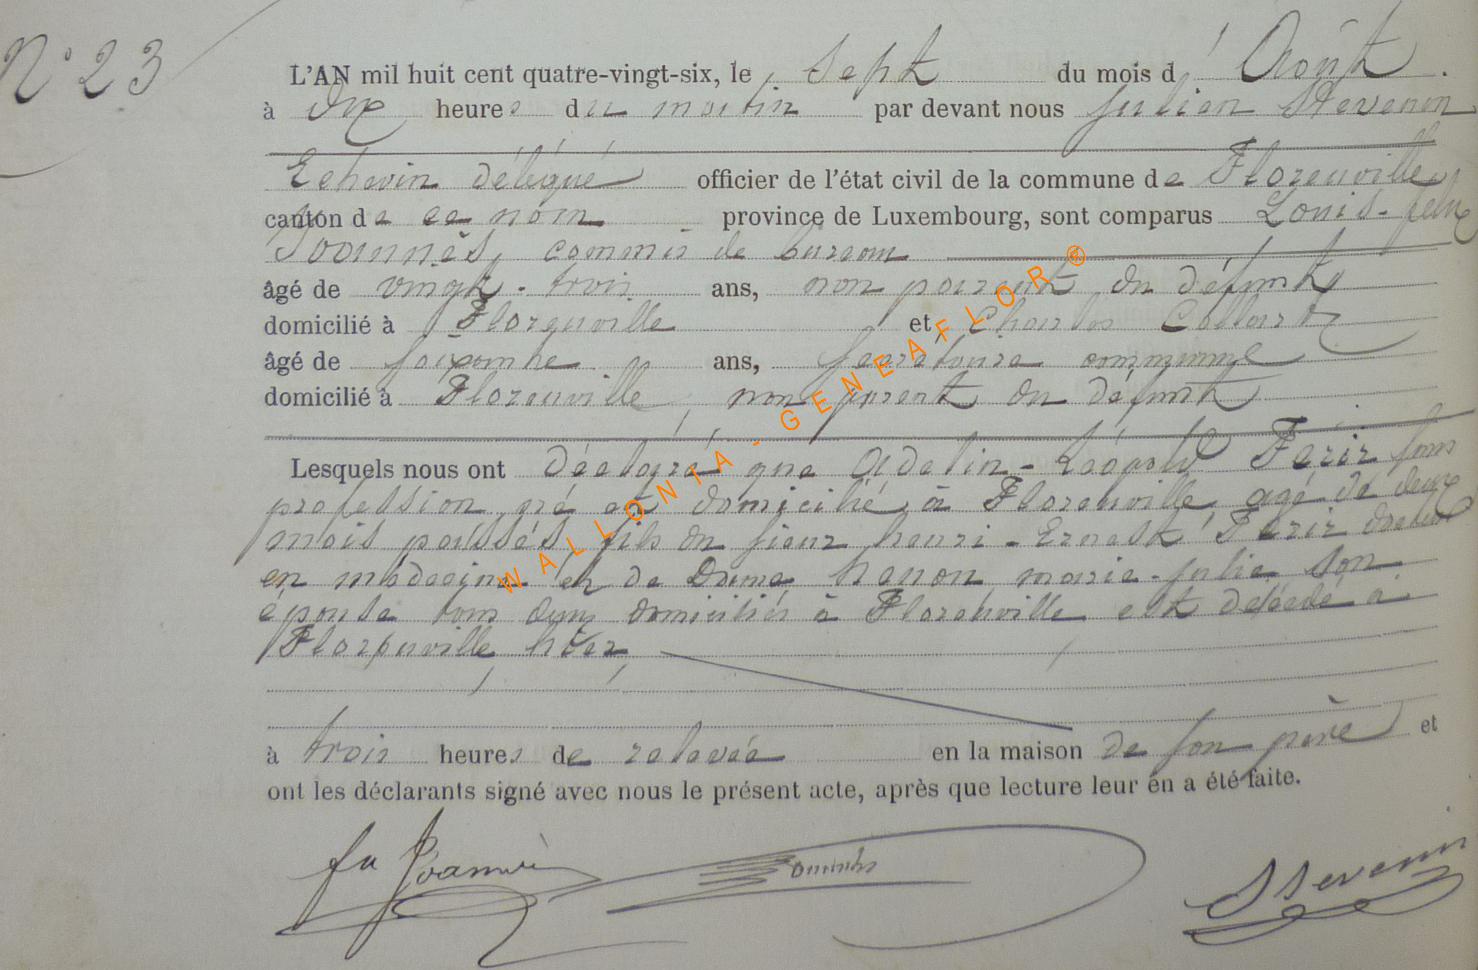 N° 23
L'AN mil huit cent quatre-vingt-six, le sept du mois d'Août.
à dix heures du matin par devant nous Julien Stevenin
Echevin délégué officier de l'état civil de la commune de Florenville,
canton de ce nom province de Luxembourg, sont comparus Louis-felix
Joannès, commis de bureau
âgé de vingt-trois ans, non parent du défunt,
domicilié à Florenville et Charles Collart
âgé de soixante ans, secrétaire communal
domicilié à Florenville, non parent du défunt
Lesquels nous ont déclaré que Adelin-Léopold Férir sans
profession, né et domicilié à Florenville, agé de deux
mois passés, fils du sieur henri-Ernest Ferir docteur
en médecine et de Dame hanon marie-julie son
épouse tous deux domiciliés à Florenville est décédé à
Florenville, hier,
à trois heures de relevée en la maison de son père et
ont les déclarants signé avec nous le présent acte, après que lecture leur en a été faite.
Joannès
Stevenin
WALLONIA - GENEAFLOR®